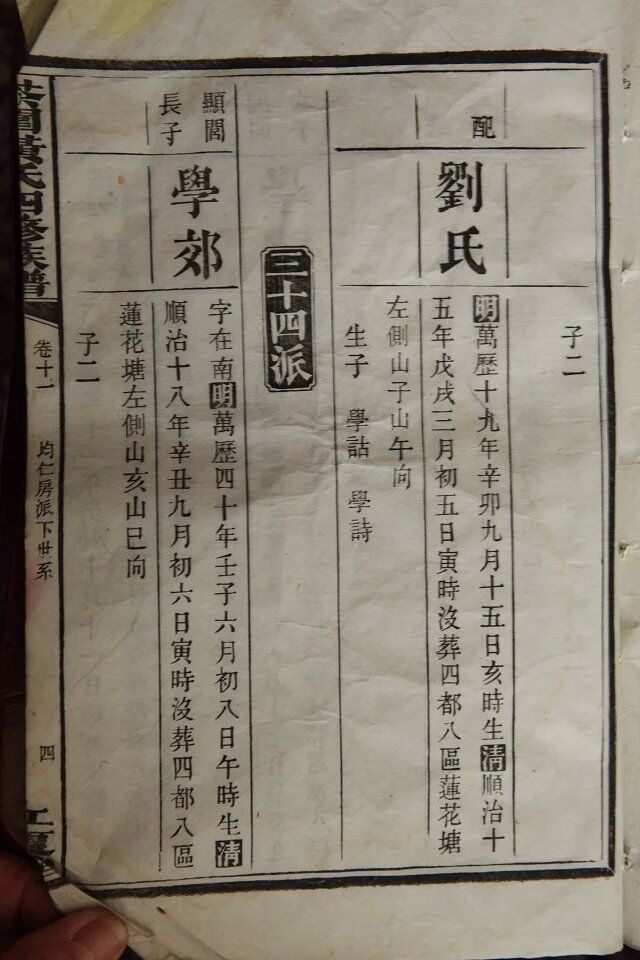 子二
配
劉氏
明萬歷十九年辛卯九月十五日亥時生清順治十
五年戊戌三月初五日寅時沒葬四都八區蓮花塘
左側山子山午向
生子 學詁 學詩
三十四派
顯
長子
學郊
字在南明萬歷四十年壬子六月初八日午時生清
順治十八年辛丑九月初六日寅時沒葬四都八區
蓮花塘左側山亥山巳向
子二
園黃氏四修族譜
卷十一
均仁房派下世系
四